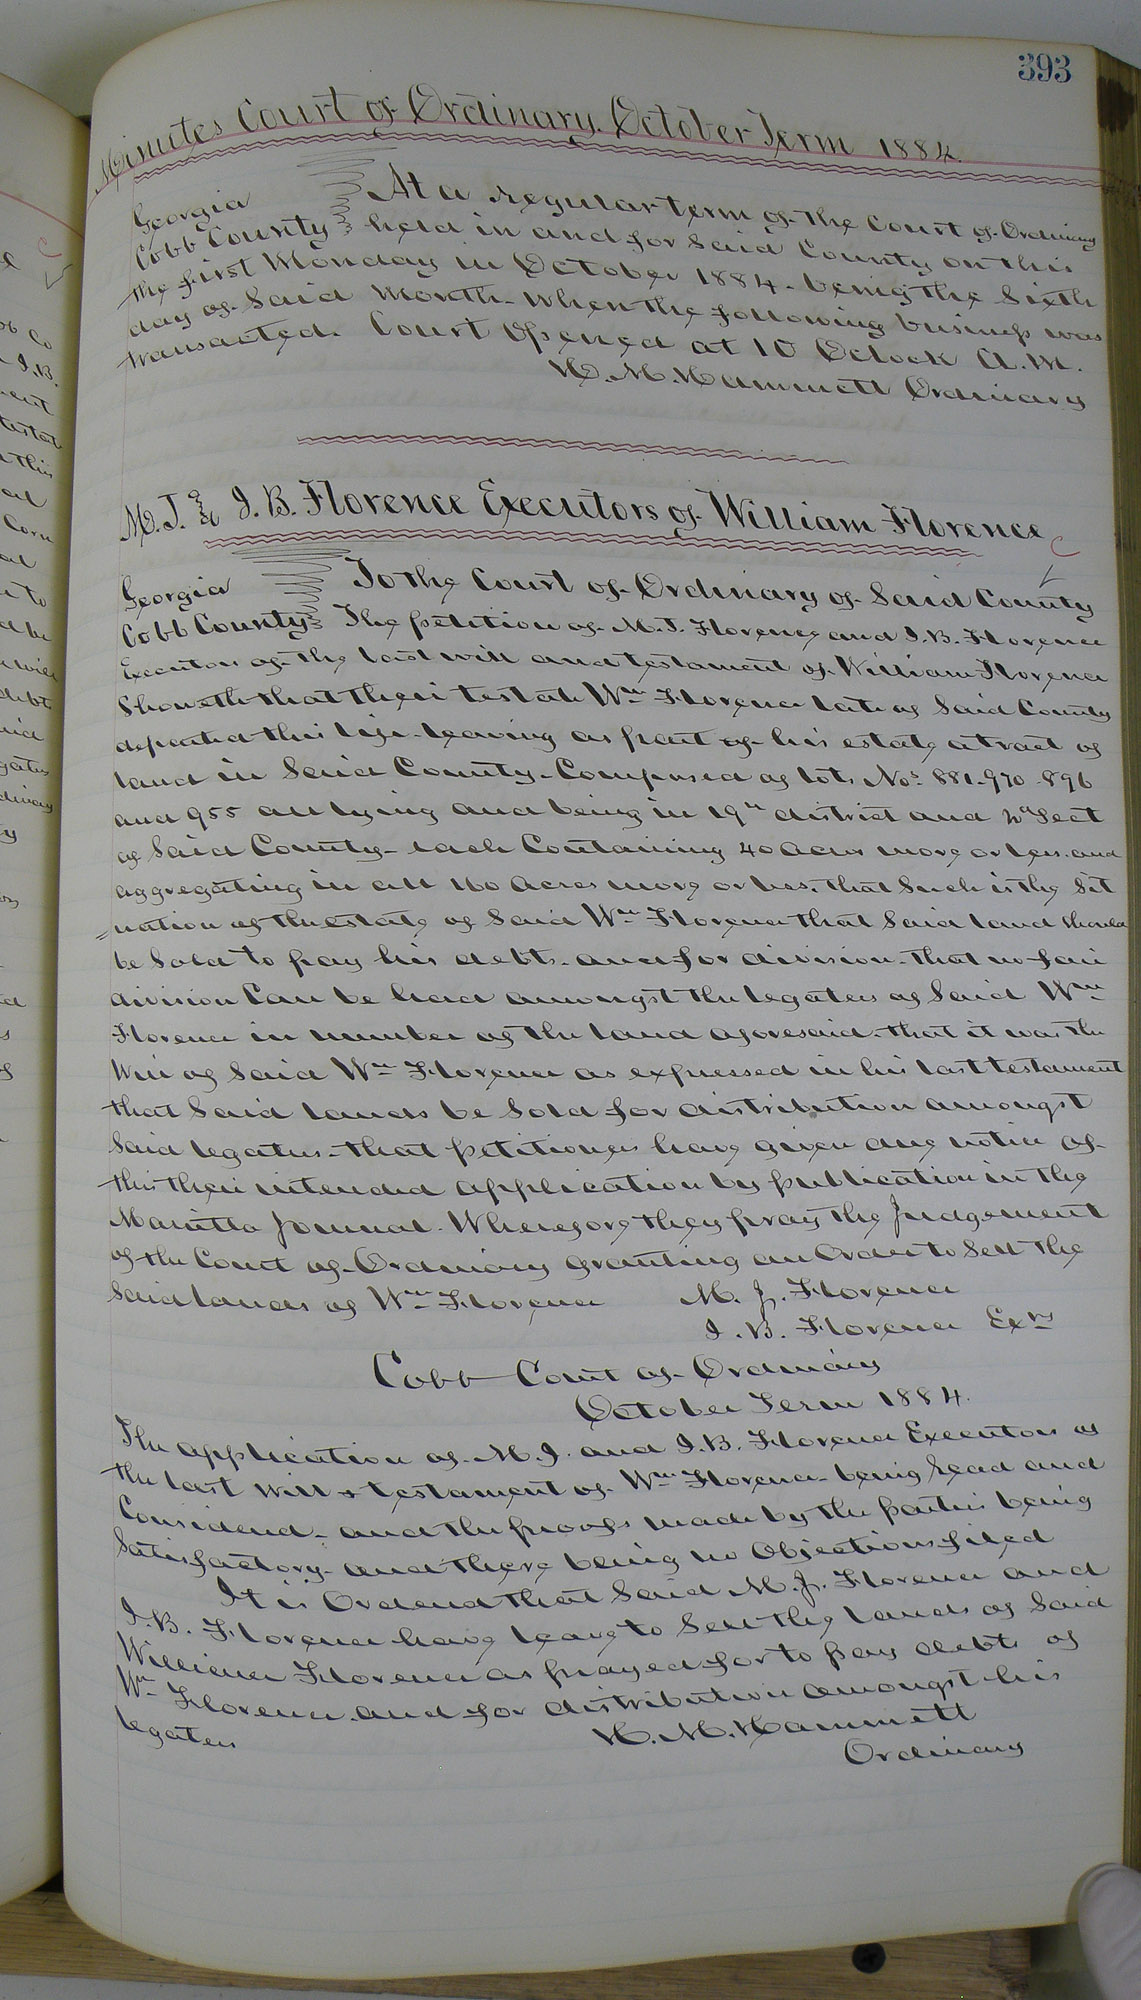 393
Minutes Court of Ordinary. October Term 1884.
Georgia
Cobb County
At a regular term of the Court of Ordinary
held in and for Said County on this
the first Monday in October 1884. being the Sixth
day of Said Month. When the following business was
transacted. Court Opened at 10 Oclock A.M.
H. M. Hammett Ordinary
M. J. & I. B. Florence Executors of William Florence
C
Georgia
Cobb County
To the Court of Ordinary of Said County
The petition of M. J. Florence and I. B. Florence
Executors of the last will and testament of William Florence
Showeth that their testate Wm Florence late of Said County
departed this life leaving as part of his estate a tract of
land in Said County. Comprised of lots Nos. 881. 970. 896
and 955 all lying and being in 19th district and 2nd Sect
of Said County. each Containing 40 acres more or less. and
aggregating in all 160 acres more or less. that Such is the Sit
uation of the estate of Said Wm Florence that Said land should
be Sold to pay his debts. and for division. that no fair
division Can be had amongst the legatees of Said Wm
Florence in number of the land aforesaid. that it was the
Will of Said Wm Florence as expressed in his last testament
that Said lands be Sold for distribution amongst
Said legatees. that petitioners have given due notice of
this their intended application by publication in the
Marietta Journal. Wherefore they pray the Judgement
of the Court of Ordinary granting an Order to Sell the
Said lands of Wm Florence
M. J. Florence
I. B. Florence Exrs
Cobb Court of Ordinary
October Term 1884.
The application of M. J. and I. B. Florence Executors of
the last will & testament of Wm Florence. being read and
Considered. and the proofs made by the parties being
Satisfactory. and there being no Objections filed
It is Ordered that Said M. J. Florence and
I. B. Florence have leave to Sell the lands of Said
William Florence as prayed for to pay debts of
Wm Florence. and for distribution amongst his
legatees
H. M. Hammett
Ordinary